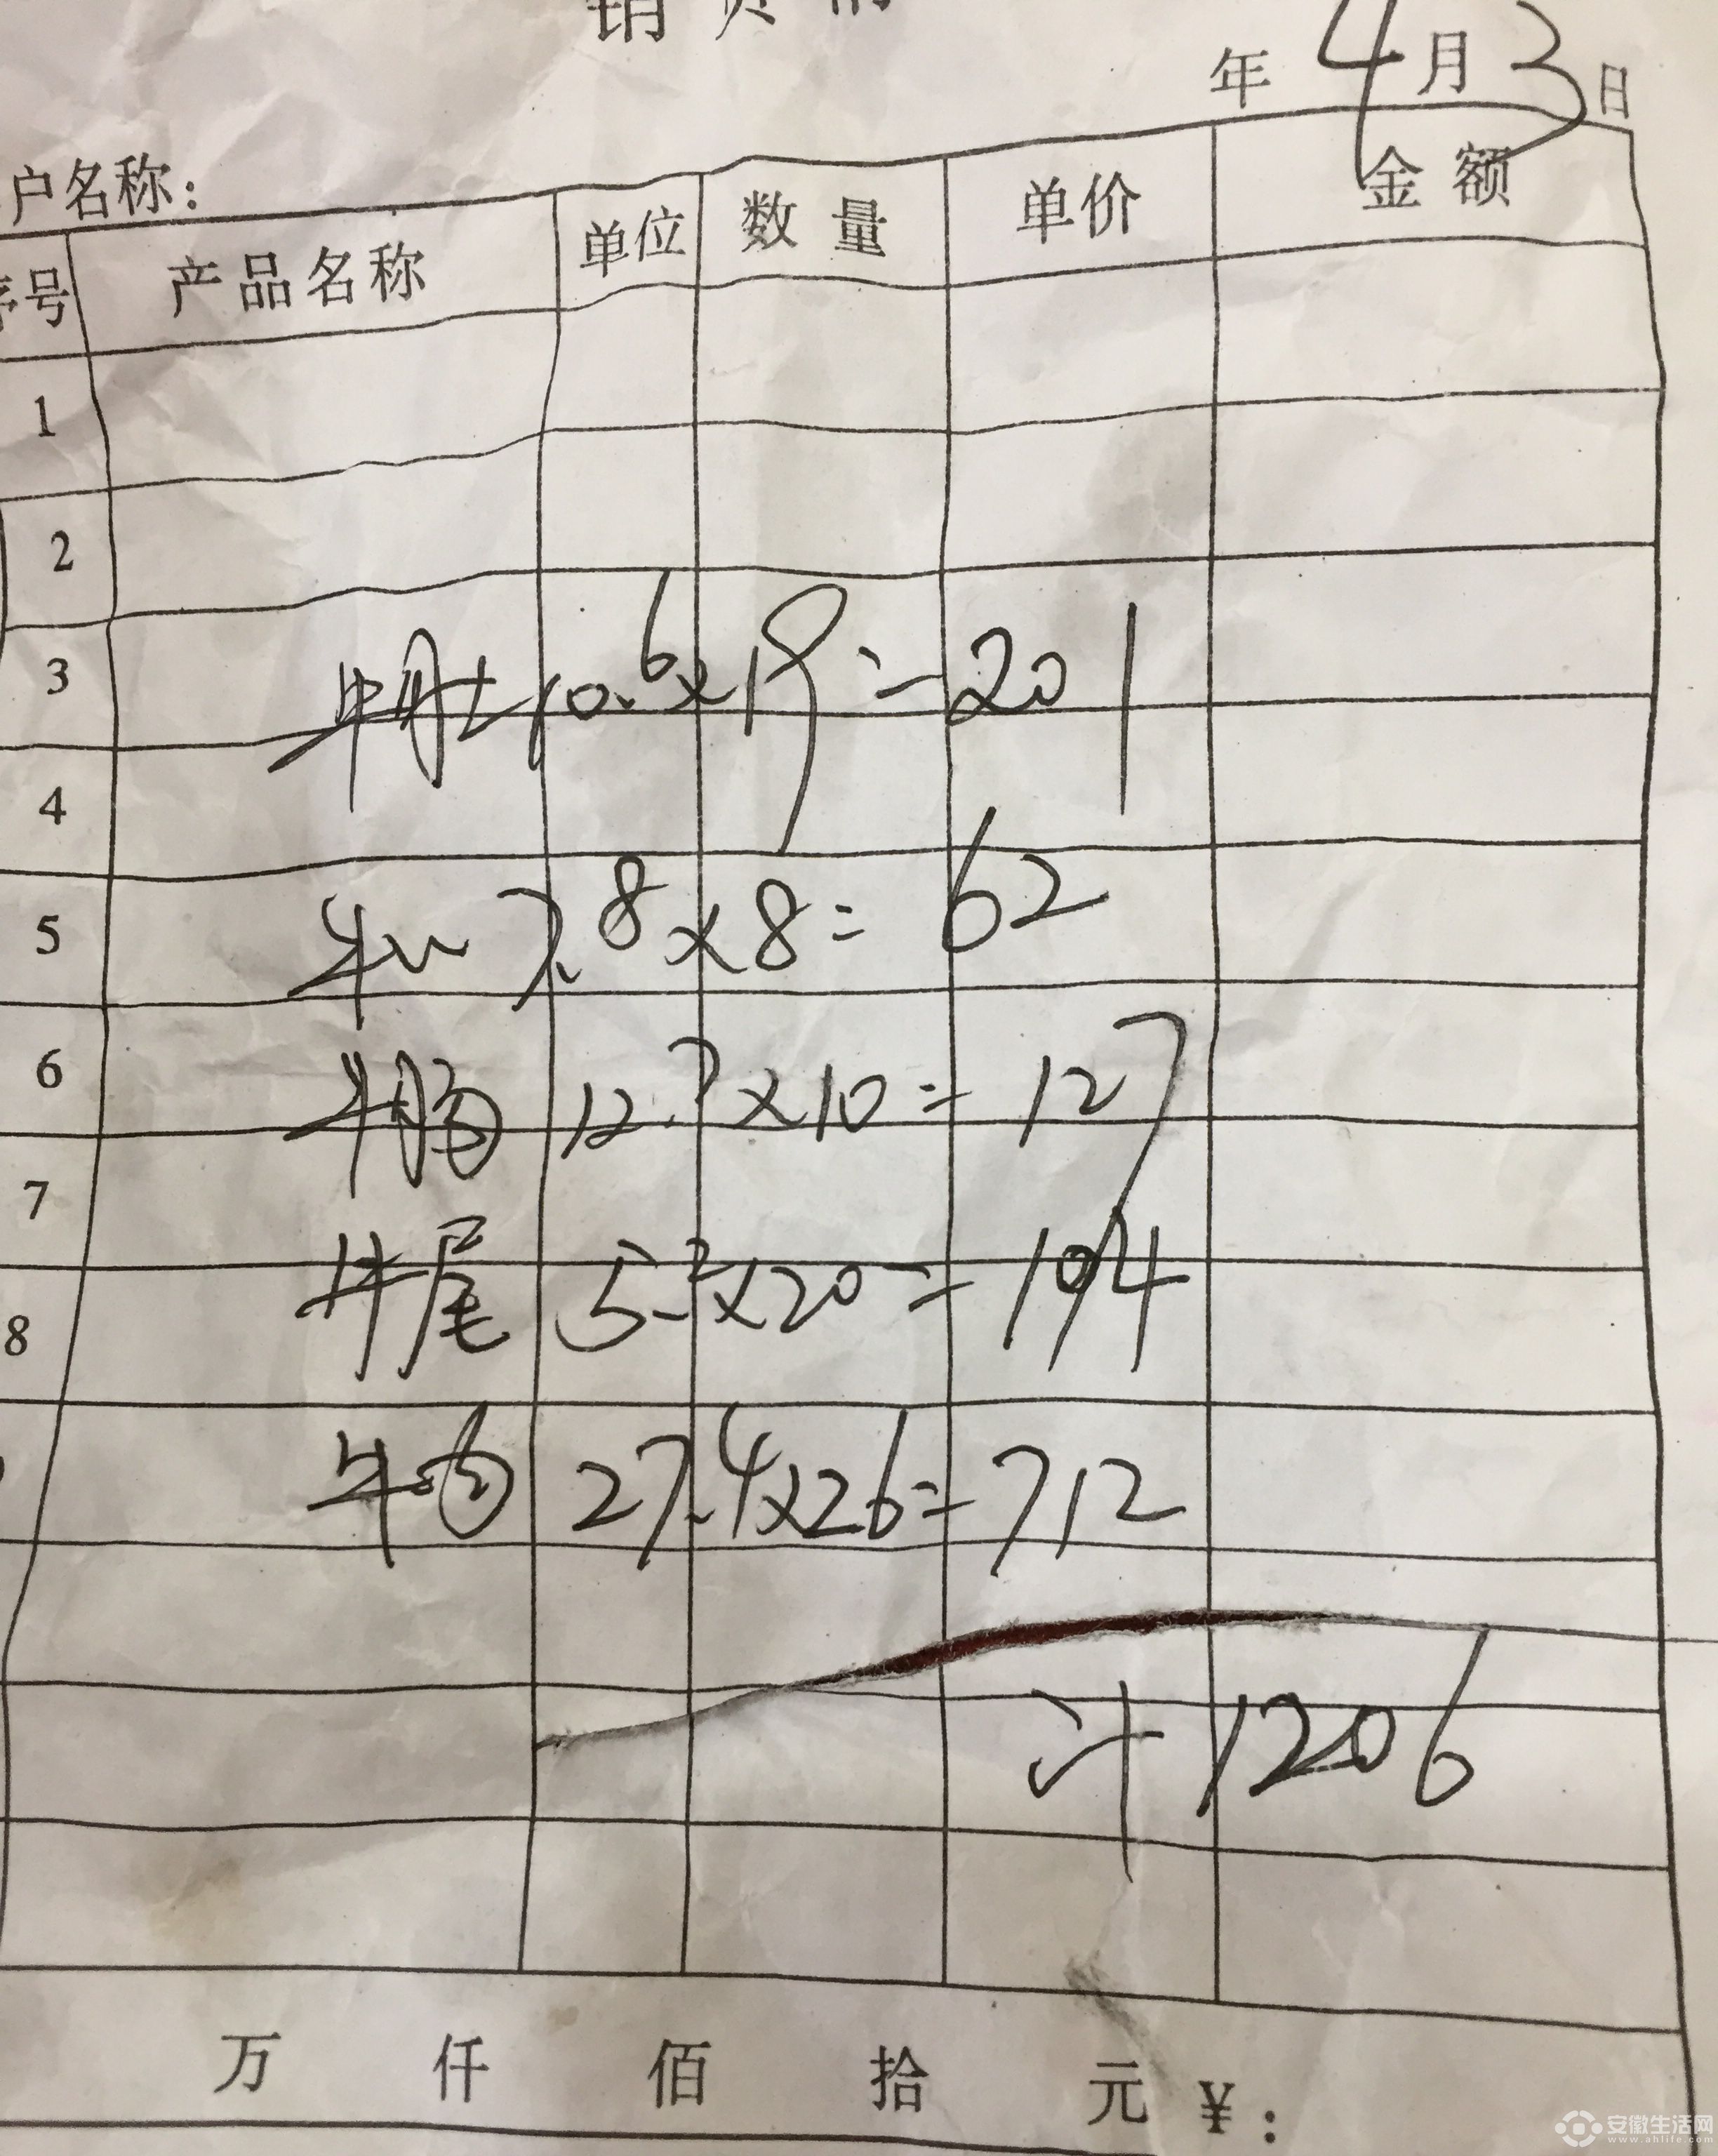 年 4月3日
户名称：
序号 产品名称 单位 数量 单价 金额
1
2
3 牛肚 10.6×19=201
4
5 牛心 7.8×8=62
6 牛肠 12.7×10=127
7
8 牛尾 5.2×20=104
牛肉 27.4×26=712
计 1206
万 仟 佰 拾 元 ¥：
安徽生活网
www.ahlife.com